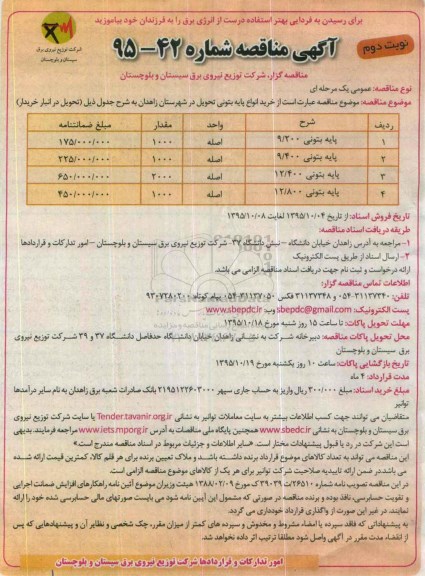 برای رسیدن به فردایی بهتر استفاده درست از انرژی برق را به فرزندان خود بیاموزید
نوبت دوم
آگهی مناقصه شماره ۴۲-۹۵
شرکت توزیع نیروی برق
سیستان و بلوچستان
مناقصه گزار، شرکت توزیع نیروی برق سیستان و بلوچستان
نوع مناقصه: عمومی یک مرحله ای
موضوع مناقصه: موضوع مناقصه عبارت است از خرید انواع پایه بتونی تحویل در شهرستان زاهدان به شرح جدول ذیل (تحویل در انبار خریدار)
ردیف شرح واحد مقدار مبلغ ضمانتنامه
۱ پایه بتونی ۹/۲۰۰ اصله ۱۰۰۰ ۱۷۵/۰۰۰/۰۰۰
۲ پایه بتونی ۹/۴۰۰ اصله ۱۰۰۰ ۲۲۵/۰۰۰/۰۰۰
۳ پایه بتونی ۱۲/۴۰۰ اصله ۲۰۰۰ ۶۵۰/۰۰۰/۰۰۰
۴ پایه بتونی ۱۲/۸۰۰ اصله ۱۰۰۰ ۴۵۰/۰۰۰/۰۰۰
تاریخ فروش اسناد: از تاریخ ۱۳۹۵/۱۰/۰۴ لغایت ۱۳۹۵/۱۰/۰۸
طریقه دریافت اسناد مناقصه:
۱- مراجعه به آدرس زاهدان خیابان دانشگاه - نبش دانشگاه ۳۷- شرکت توزیع نیروی برق سیستان و بلوچستان - امور تدارکات و قراردادها
۲- ارسال اسناد از طریق پست الکترونیک
ارائه درخواست و ثبت نام جهت دریافت اسناد مناقصه الزامی می باشد.
اطلاعات تماس مناقصه گزار:
تلفن: ۳۱۱۳۷۳۴۰-۰۵۴ و ۳۱۱۳۷۳۴۸ فکس ۳۱۱۳۷۰۵۰-۰۵۴ پیام کوتاه:
پست الکترونیک: sbepdc@gmail.com وب: www.sbepdc.ir
مهلت تحویل پاکات: تا ساعت ۱۵ روز شنبه مورخ ۱۳۹۵/۱۰/۱۸
محل تحویل پاکات مناقصه: دبیرخانه شرکت به نشانی زاهدان خیابان دانشگاه حدفاصل دانشگاه ۳۷ و ۳۹ شرکت توزیع نیروی
برق سیستان و بلوچستان
تاریخ بازگشایی پاکات: ساعت ۱۰ روز یکشنبه مورخ ۱۳۹۵/۱۰/۱۹
مدت قرارداد: ۴ ماه
مبلغ خرید اسناد: مبلغ ۳۰۰/۰۰۰ ریال واریز به حساب جاری سپهر ۲۱۹۵۱۲۲۶۰۳۰۰۰ بانک صادرات شعبه برق زاهدان به نام سایر درآمدها
توانیر
متقاضیان می توانند جهت کسب اطلاعات بیشتر به سایت معاملات توانیر به نشانی Tender.tavanir.org.ir یا سایت شرکت توزیع نیروی
برق سیستان و بلوچستان به نشانی www.sbedc.ir همچنین پایگاه ملی مناقصات به آدرس www.iets.mporg.ir مراجعه فرمایند. بدیهی
است این شرکت در رد یا قبول پیشنهادات مختار است. «سایر اطلاعات و جزئیات مربوط در اسناد مناقصه مندرج است»
این مناقصه می تواند به تعداد کالاهای موضوع قرارداد برنده داشته باشد و ملاک تعیین برنده برای هر قلم کالا، کمترین قیمت ارائه شده
می باشد در ضمن ارائه تاییدیه صلاحیت شرکت توانیر برای هر یک از کالاهای موضوع مناقصه الزامی است
در این مناقصه تصویب نامه شماره ۲۶۵۱۰/ت ۳۹۰۳۹ ک مورخ ۱۳۸۸/۰۲/۰۹ هیئت وزیران موضوع آئین نامه راهکارهای افزایش ضمانت اجرایی
و تقویت حسابرسی، نافذ بوده و برنده مناقصه در صورتی که مشمول این آیین نامه شود می بایست صورتهای مالی حسابرسی شده خود را ارائه
نمایند، در غیر این صورت از واگذاری قرارداد خودداری می گردد.
به پیشنهاداتی که فاقد سپرده یا امضاء مشروط و مخدوش و سپرده های کمتر از میزان مقرر، چک شخصی و نظایر آن و پیشنهادهایی که پس
از انقضاء مدت مقرر در آگهی واصل شود مطلقا ترتیب اثر داده نخواهد شد.
امور تدارکات و قراردادها شرکت توزیع نیروی برق سیستان و بلوچستان